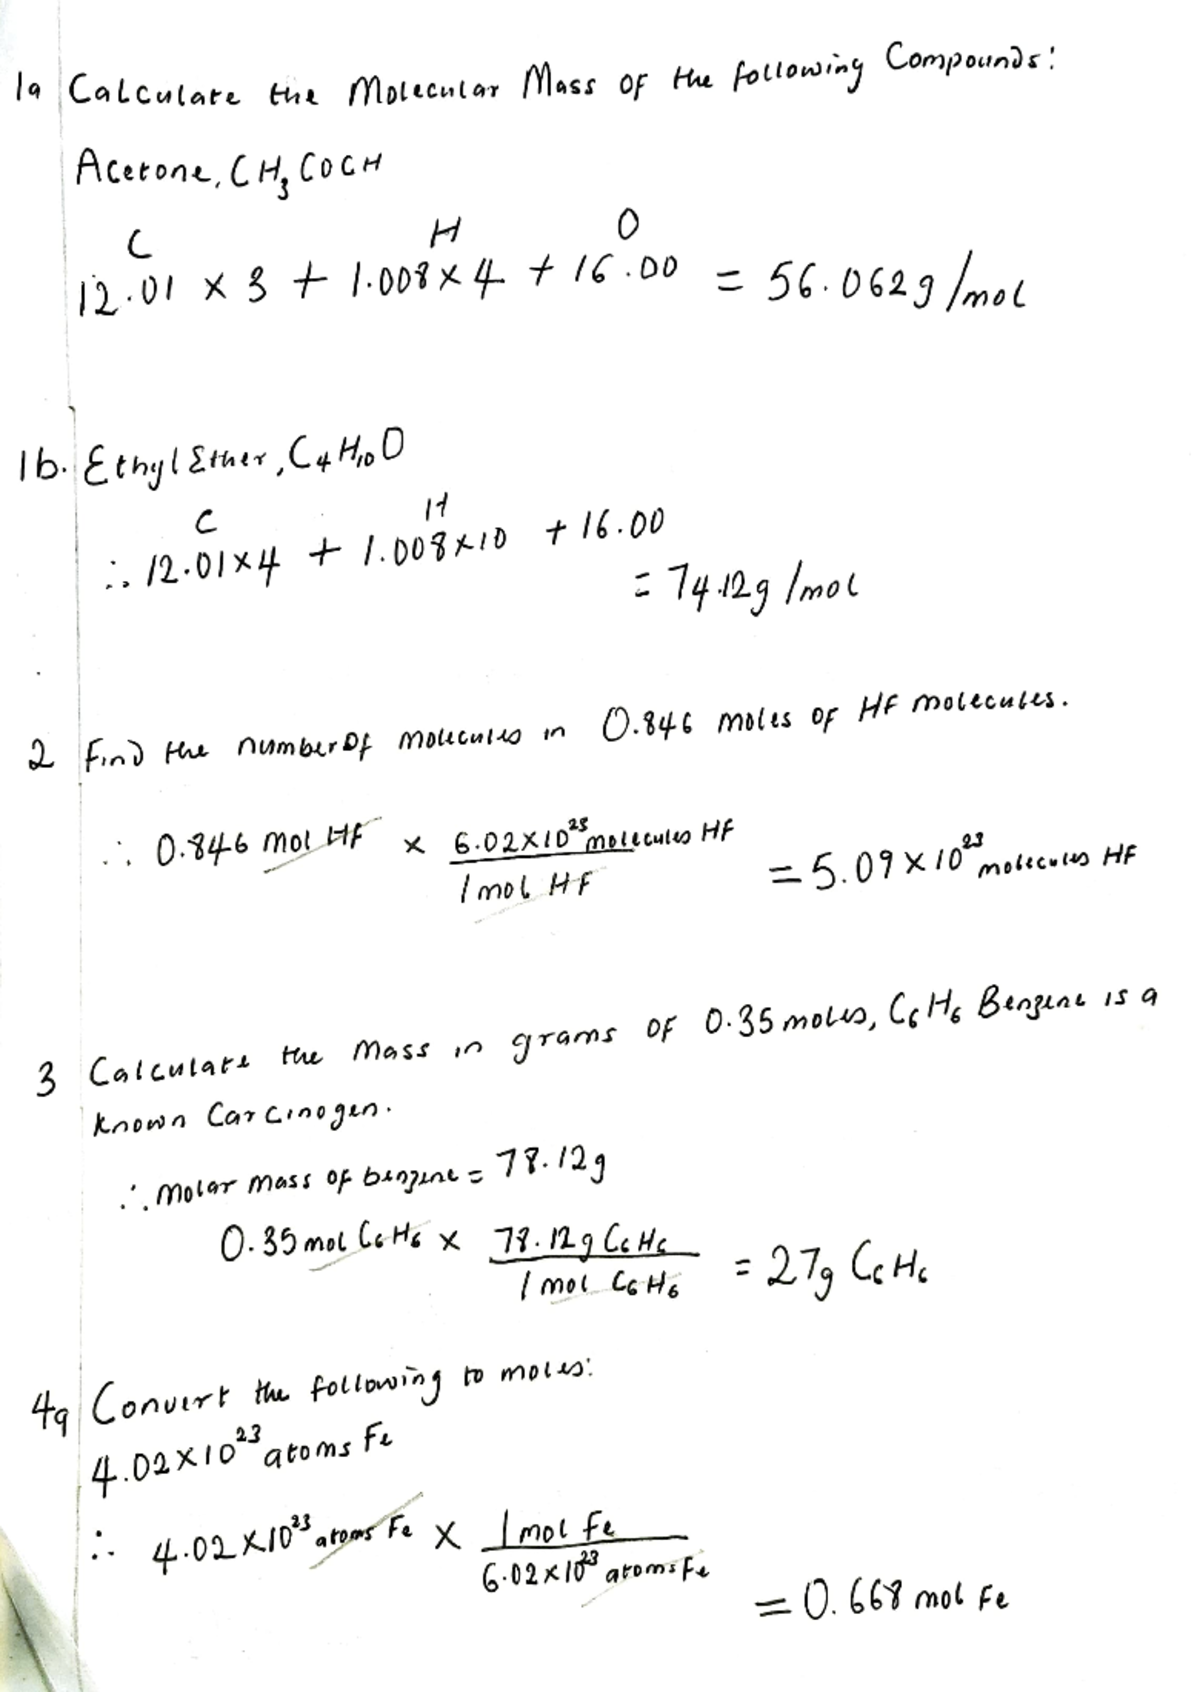 1a Calculate the Molecular Mass of the following Compounds:
Acetone, CH₃COCH
C H O
12.01 × 3 + 1.008 × 4 + 16.00 = 56.062g/mol
1b. Ethyl Ether, C₄H₁₀O
C H
∴ 12.01×4 + 1.008×10 + 16.00
= 74.12g/mol
2 Find the number of molecules in 0.846 moles of HF molecules.
∴ 0.846 mol HF × 6.02×10²³ molecules HF
1 mol HF
= 5.09×10²³ molecules HF
3 Calculate the Mass in grams of 0.35 moles, C₆H₆ Benzene is a
known Carcinogen.
∴ molar mass of benzene = 78.12g
0.35 mol C₆H₆ × 78.12g C₆H₆
1 mol C₆H₆
= 27g C₆H₆
4a Convert the following to moles:
4.02×10²³ atoms Fe
∴ 4.02×10²³ atoms Fe × 1 mol Fe
6.02×10²³ atoms Fe
= 0.668 mol Fe